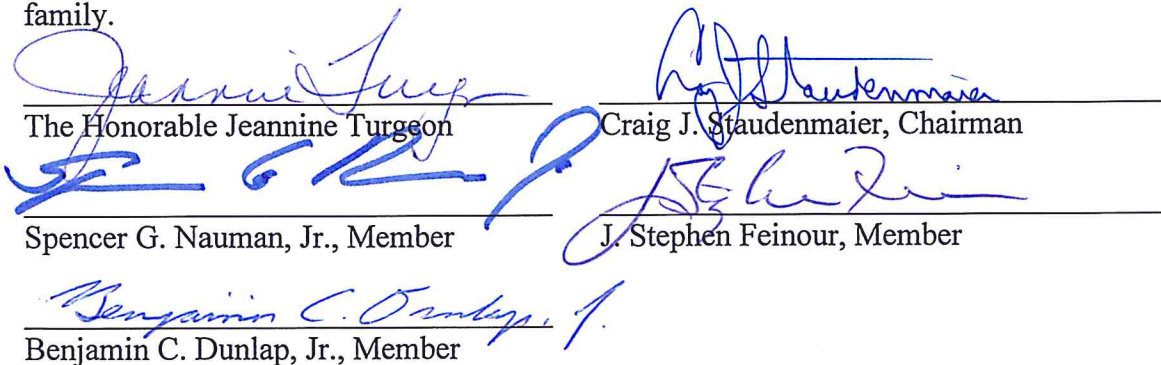 family.
Jeannine Turgeon
Craig J Staudenmaier
The Honorable Jeannine Turgeon
Craig J. Staudenmaier, Chairman
J Stephen Feinour
Spencer G. Nauman, Jr., Member
J. Stephen Feinour, Member
Benjamin C. Dunlap, Jr.
Benjamin C. Dunlap, Jr., Member